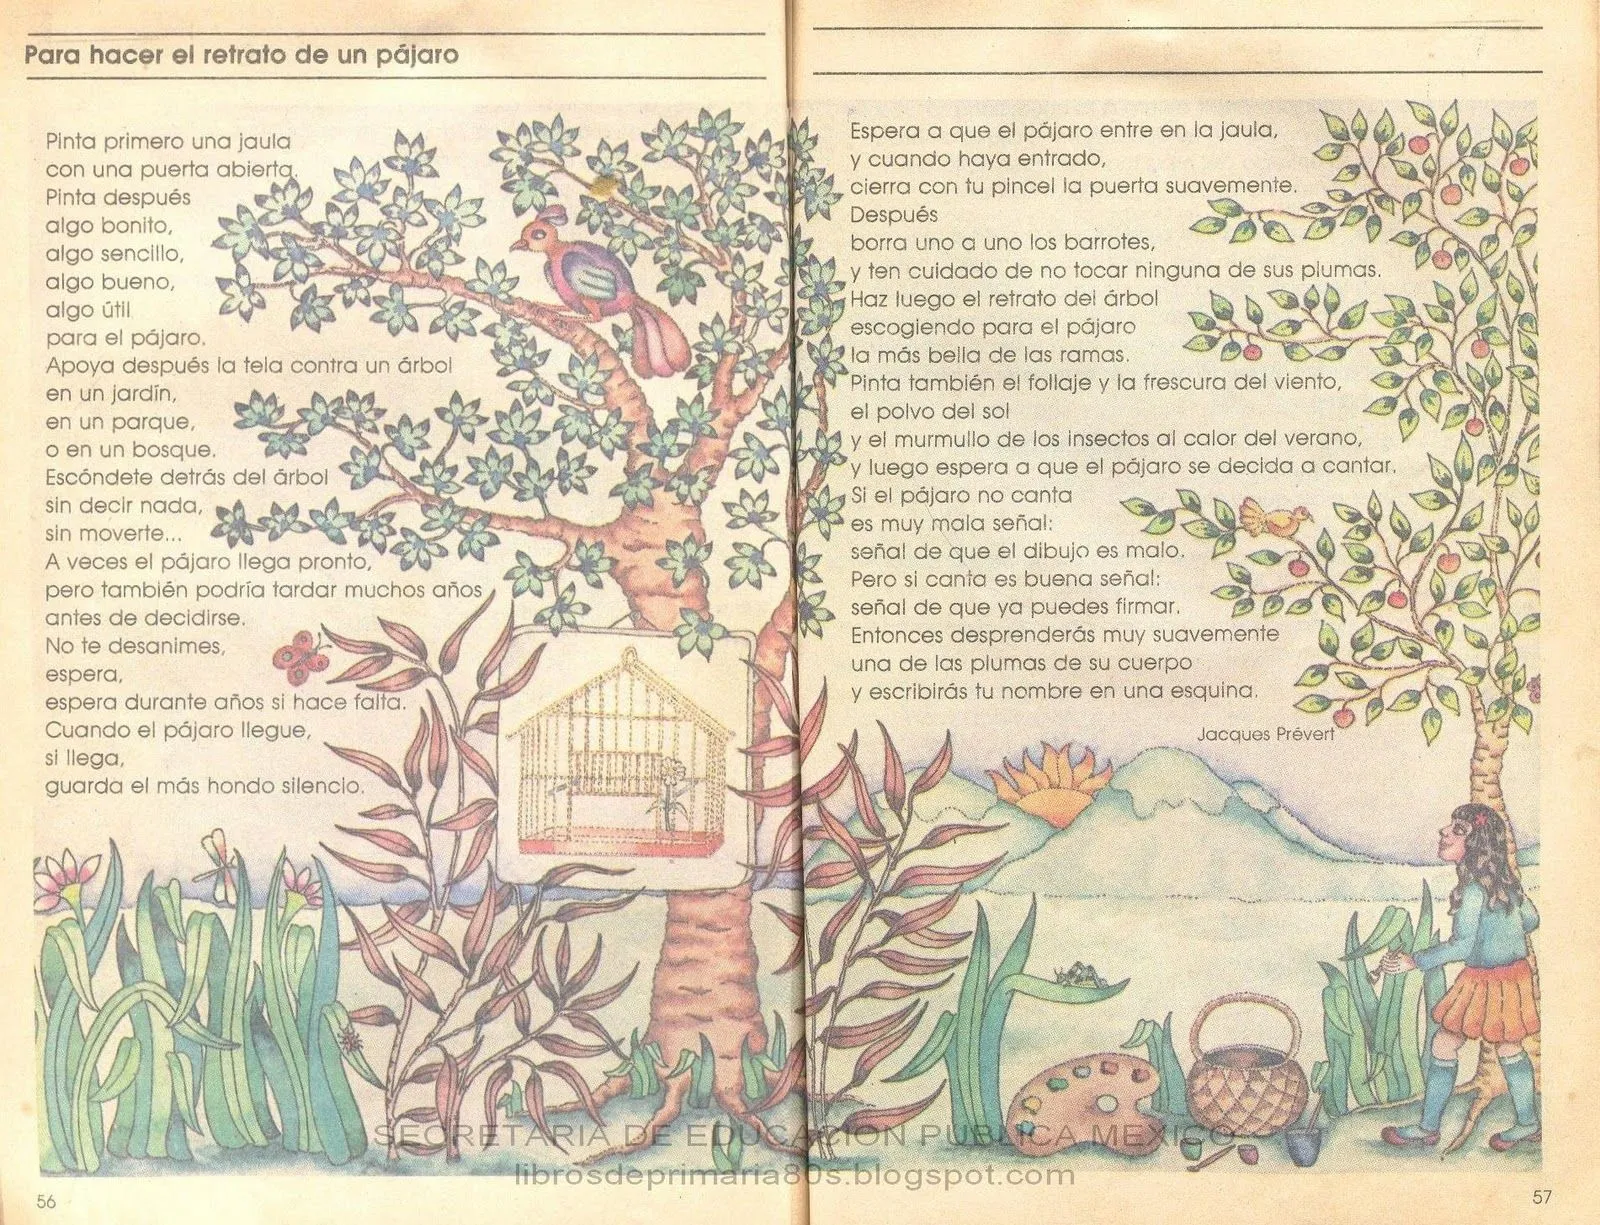 Para hacer el retrato de un pájaro
Pinta primero una jaula
con una puerta abierta.
Pinta después
algo bonito,
algo sencillo,
algo bueno,
algo útil
para el pájaro.
Apoya después la tela contra un árbol
en un jardín,
en un parque,
o en un bosque.
Escóndete detrás del árbol
sin decir nada,
sin moverte...
A veces el pájaro llega pronto,
pero también podría tardar muchos años
antes de decidirse.
No te desanimes,
espera,
espera durante años si hace falta.
Cuando el pájaro llegue,
si llega,
guarda el más hondo silencio.
56
Espera a que el pájaro entre en la jaula,
y cuando haya entrado,
cierra con tu pincel la puerta suavemente.
Después
borra uno a uno los barrotes,
y ten cuidado de no tocar ninguna de sus plumas.
Haz luego el retrato del árbol
escogiendo para el pájaro
la más bella de las ramas.
Pinta también el follaje y la frescura del viento,
el polvo del sol
y el murmullo de los insectos al calor del verano,
y luego espera a que el pájaro se decida a cantar.
Si el pájaro no canta
es muy mala señal:
señal de que el dibujo es malo.
Pero si canta es buena señal:
señal de que ya puedes firmar.
Entonces desprenderás muy suavemente
una de las plumas de su cuerpo
y escribirás tu nombre en una esquina.
Jacques Prévert
SECRETARIA DE EDUCACION PUBLICA MEXICO
librosdeprimaria80s.blogspot.com
57